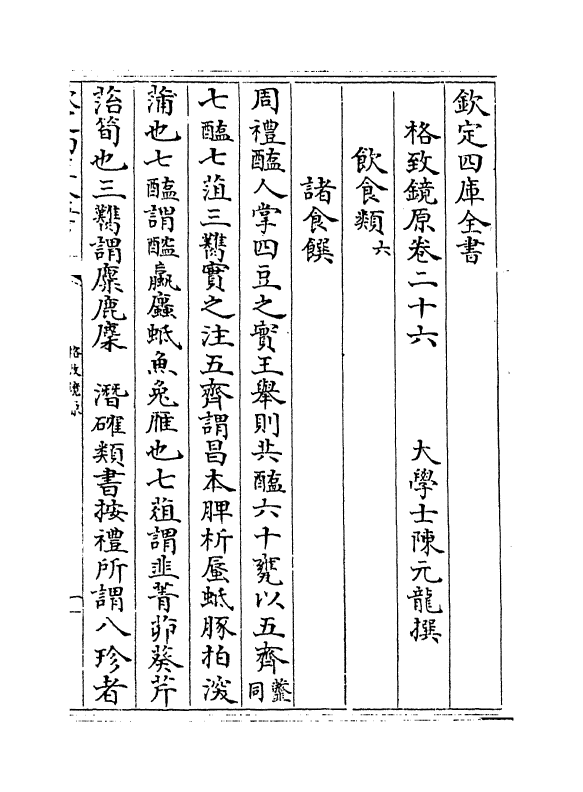 欽定四庫全書
格致鏡原卷二十六 大學士陳元龍撰
飲食類六
諸食饌
周禮醢人掌四豆之實王舉則共醢六十罋以五齊齏同
七醢七菹三臡實之注五齊謂昌本脾析蜃蚳豚拍深
蒲也七醢謂醓蠃蠯蚳魚兔雁也七菹謂韭菁茆葵芹
菭筍也三臡謂麋鹿麇 潛確類書按禮所謂八珍者
格致鏡原 一